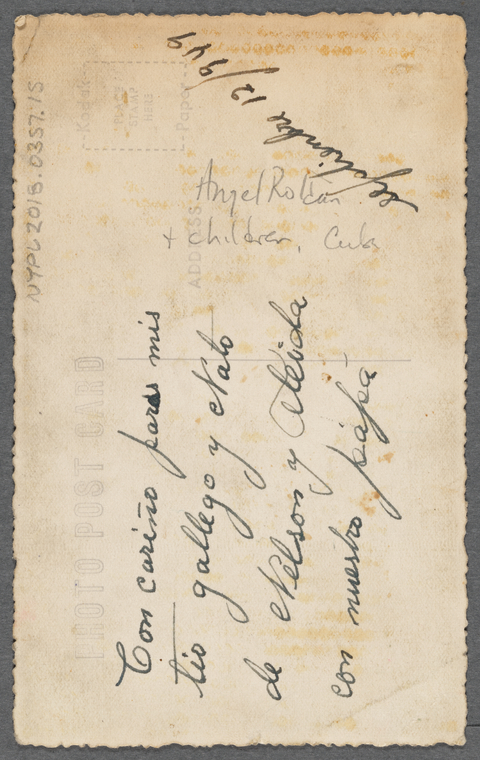 Con cariño para mis
tio gallego y Nato
de Nelson y Aleida
con nuestro papá
septiembre 12/949
Angel Roldan
+ children, Cuba
NYPL2018.0357.15
PHOTO POST CARD
ADDRESS
Kodak
PLACE
STAMP
HERE
Paper